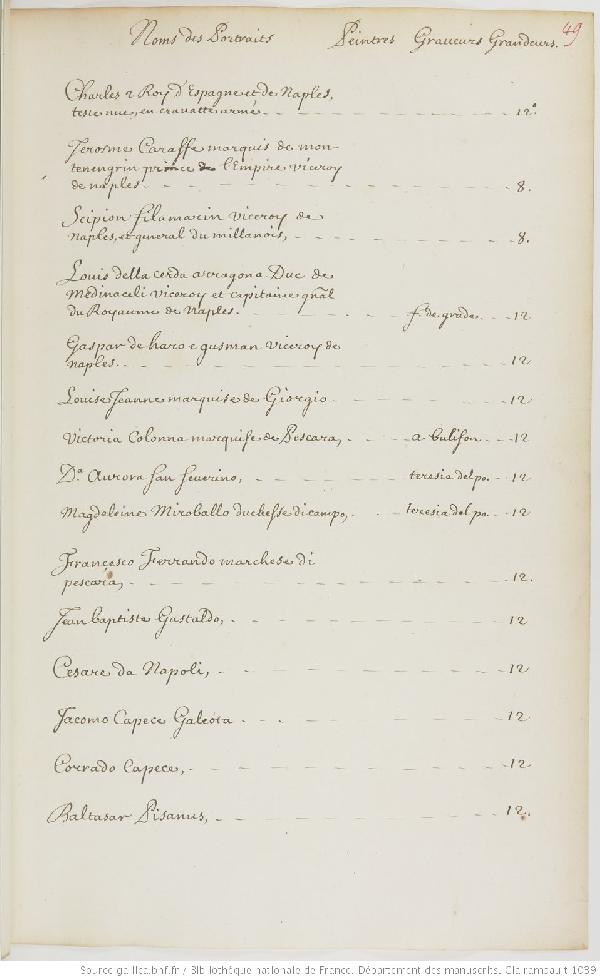 49
Noms des Portraits Peintres Graueurs Grandeurs.
Charles 2 Roy d'Espagne et de Naples,
teste nue, en crauatte armé 12°
Jerosme Caraffe marquis de mon-
tenengrin prince de l'Empire viceroy
de naples 8.
Scipion filamarin viceroy de
Naples, et general du millanois, 8.
Louis della cerda arragona Duc de
Medinaceli viceroy et capitaine gñal
du Royaume de Naples. f. de grade 12
Gaspar de haro e gusman viceroy de
naples. 12
Louise Jeanne marquise de Giorgio 12
Victoria Colonna marquise de Pescara, a bulifon 12
Da. Aurora San Severino, teresia del po. 12
Magdeleine Miroballo duchesse di campo, teresia del po. 12
Francesco Ferrando marchese di
pescara, 12.
Jean baptiste Gastaldo, 12
Cesare da Napoli, 12
Jacomo Capece Galeota 12
Corrado Capece, 12
Baltasar Pisanus, 12.
Source gallica.bnf.fr / Bibliothèque nationale de France. Département des manuscrits. Clairambault 1039